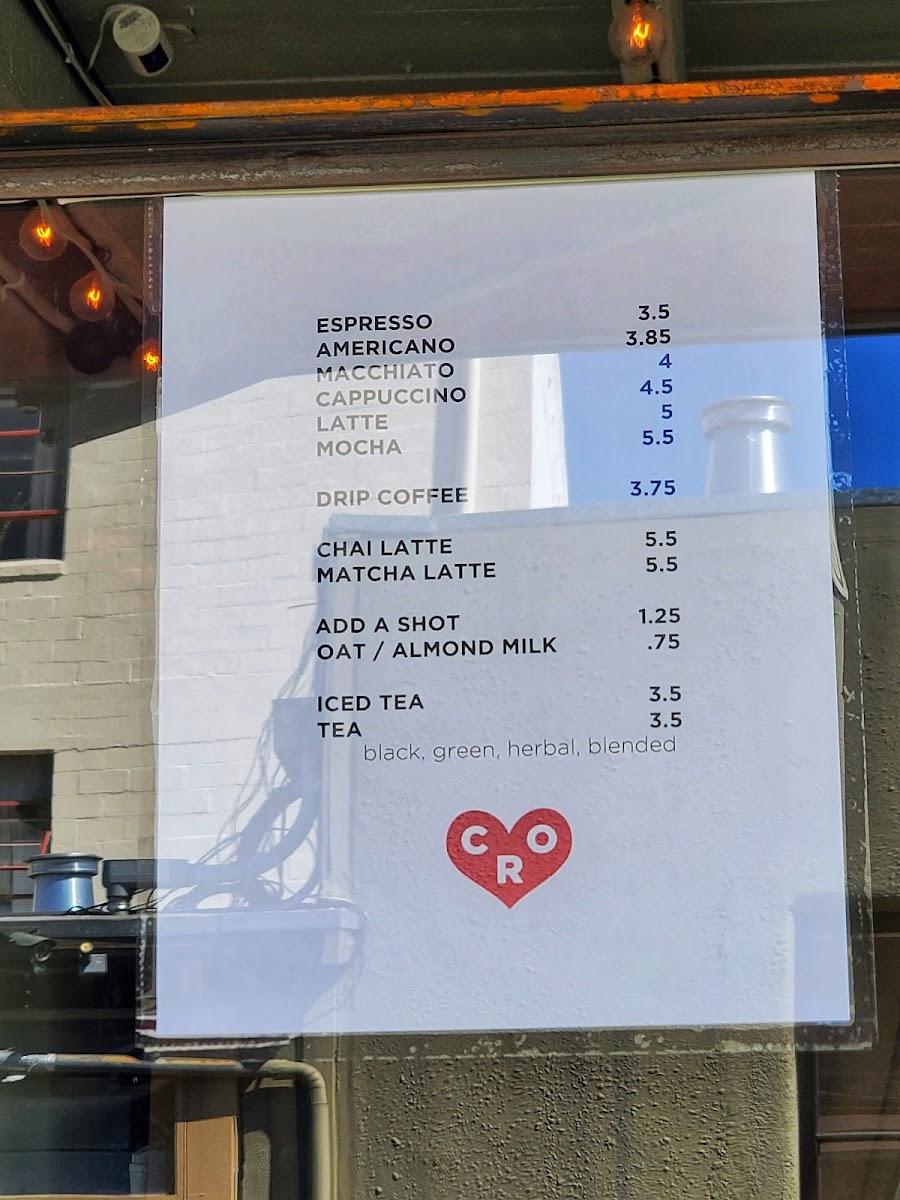 ESPRESSO 3.5
AMERICANO 3.85
MACCHIATO 4
CAPPUCCINO 4.5
LATTE 5
MOCHA 5.5
DRIP COFFEE 3.75
CHAI LATTE 5.5
MATCHA LATTE 5.5
ADD A SHOT 1.25
OAT / ALMOND MILK .75
ICED TEA 3.5
TEA 3.5
black, green, herbal, blended
CRO